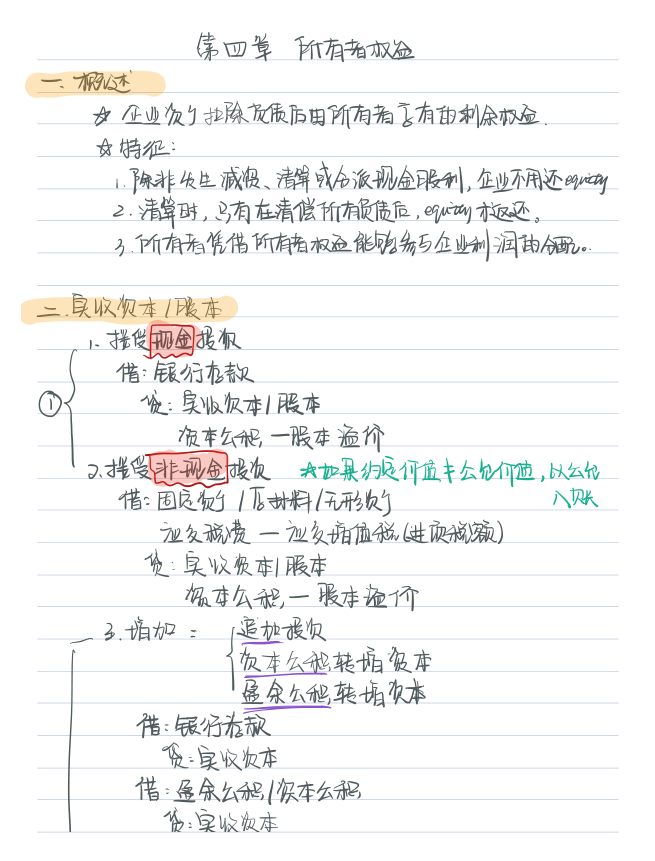 第四章 所有者权益
一、概述
☆ 企业资产扣除负债后由所有者享有的剩余权益.
☆ 特征:
1. 除非发生减资、清算或分派现金股利, 企业不用还equity
2. 清算时, 只有在清偿所有负债后, equity才返还。
3. 所有者凭借所有者权益能够参与企业利润的分配。
二.实收资本/股本
1. 接受现金投资
借: 银行存款
①
贷: 实收资本/股本
资本公积, — 股本溢价
2. 接受非现金投资 ☆如果约定价值≠公允价值, 以公允
借: 固定资产/原材料/无形资产 入账
应交税费 — 应交增值税(进项税额)
贷: 实收资本/股本
资本公积, — 股本溢价
3. 增加: 追加投资
资本公积,转增资本
盈余公积,转增资本
借: 银行存款
贷: 实收资本
借: 盈余公积,/资本公积,
贷: 实收资本